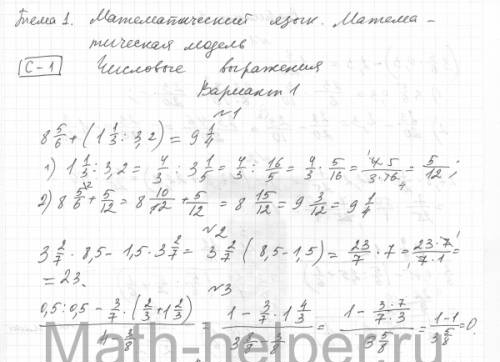 Тема 1. Математический язык. Матема-
тическая модель
С-1 Числовые выражения
Вариант 1
№1
8 5/6 + (1 1/3 : 3,2) = 9 1/4
1) 1 1/3 : 3,2 = 4/3 : 3 1/5 = 4/3 : 16/5 = 4/3 · 5/16 = 4·5/3·16 = 5/12;
2) 8 5/6 + 5/12 = 8 10/12 + 5/12 = 8 15/12 = 9 3/12 = 9 1/4
№2
3 2/7 · 8,5 - 1,5 · 3 2/7 = 3 2/7 (8,5 - 1,5) = 23/7 · 7 = 23·7/7·1 =
= 23.
№3
0,5 : 0,5 - 3/7 · (2/3 + 1 2/3) = 1 - 3/7 · 1 4/3 = 1 - 3·7/7·3 = 1-1 = 0.
3 5/8
Math-helper.ru